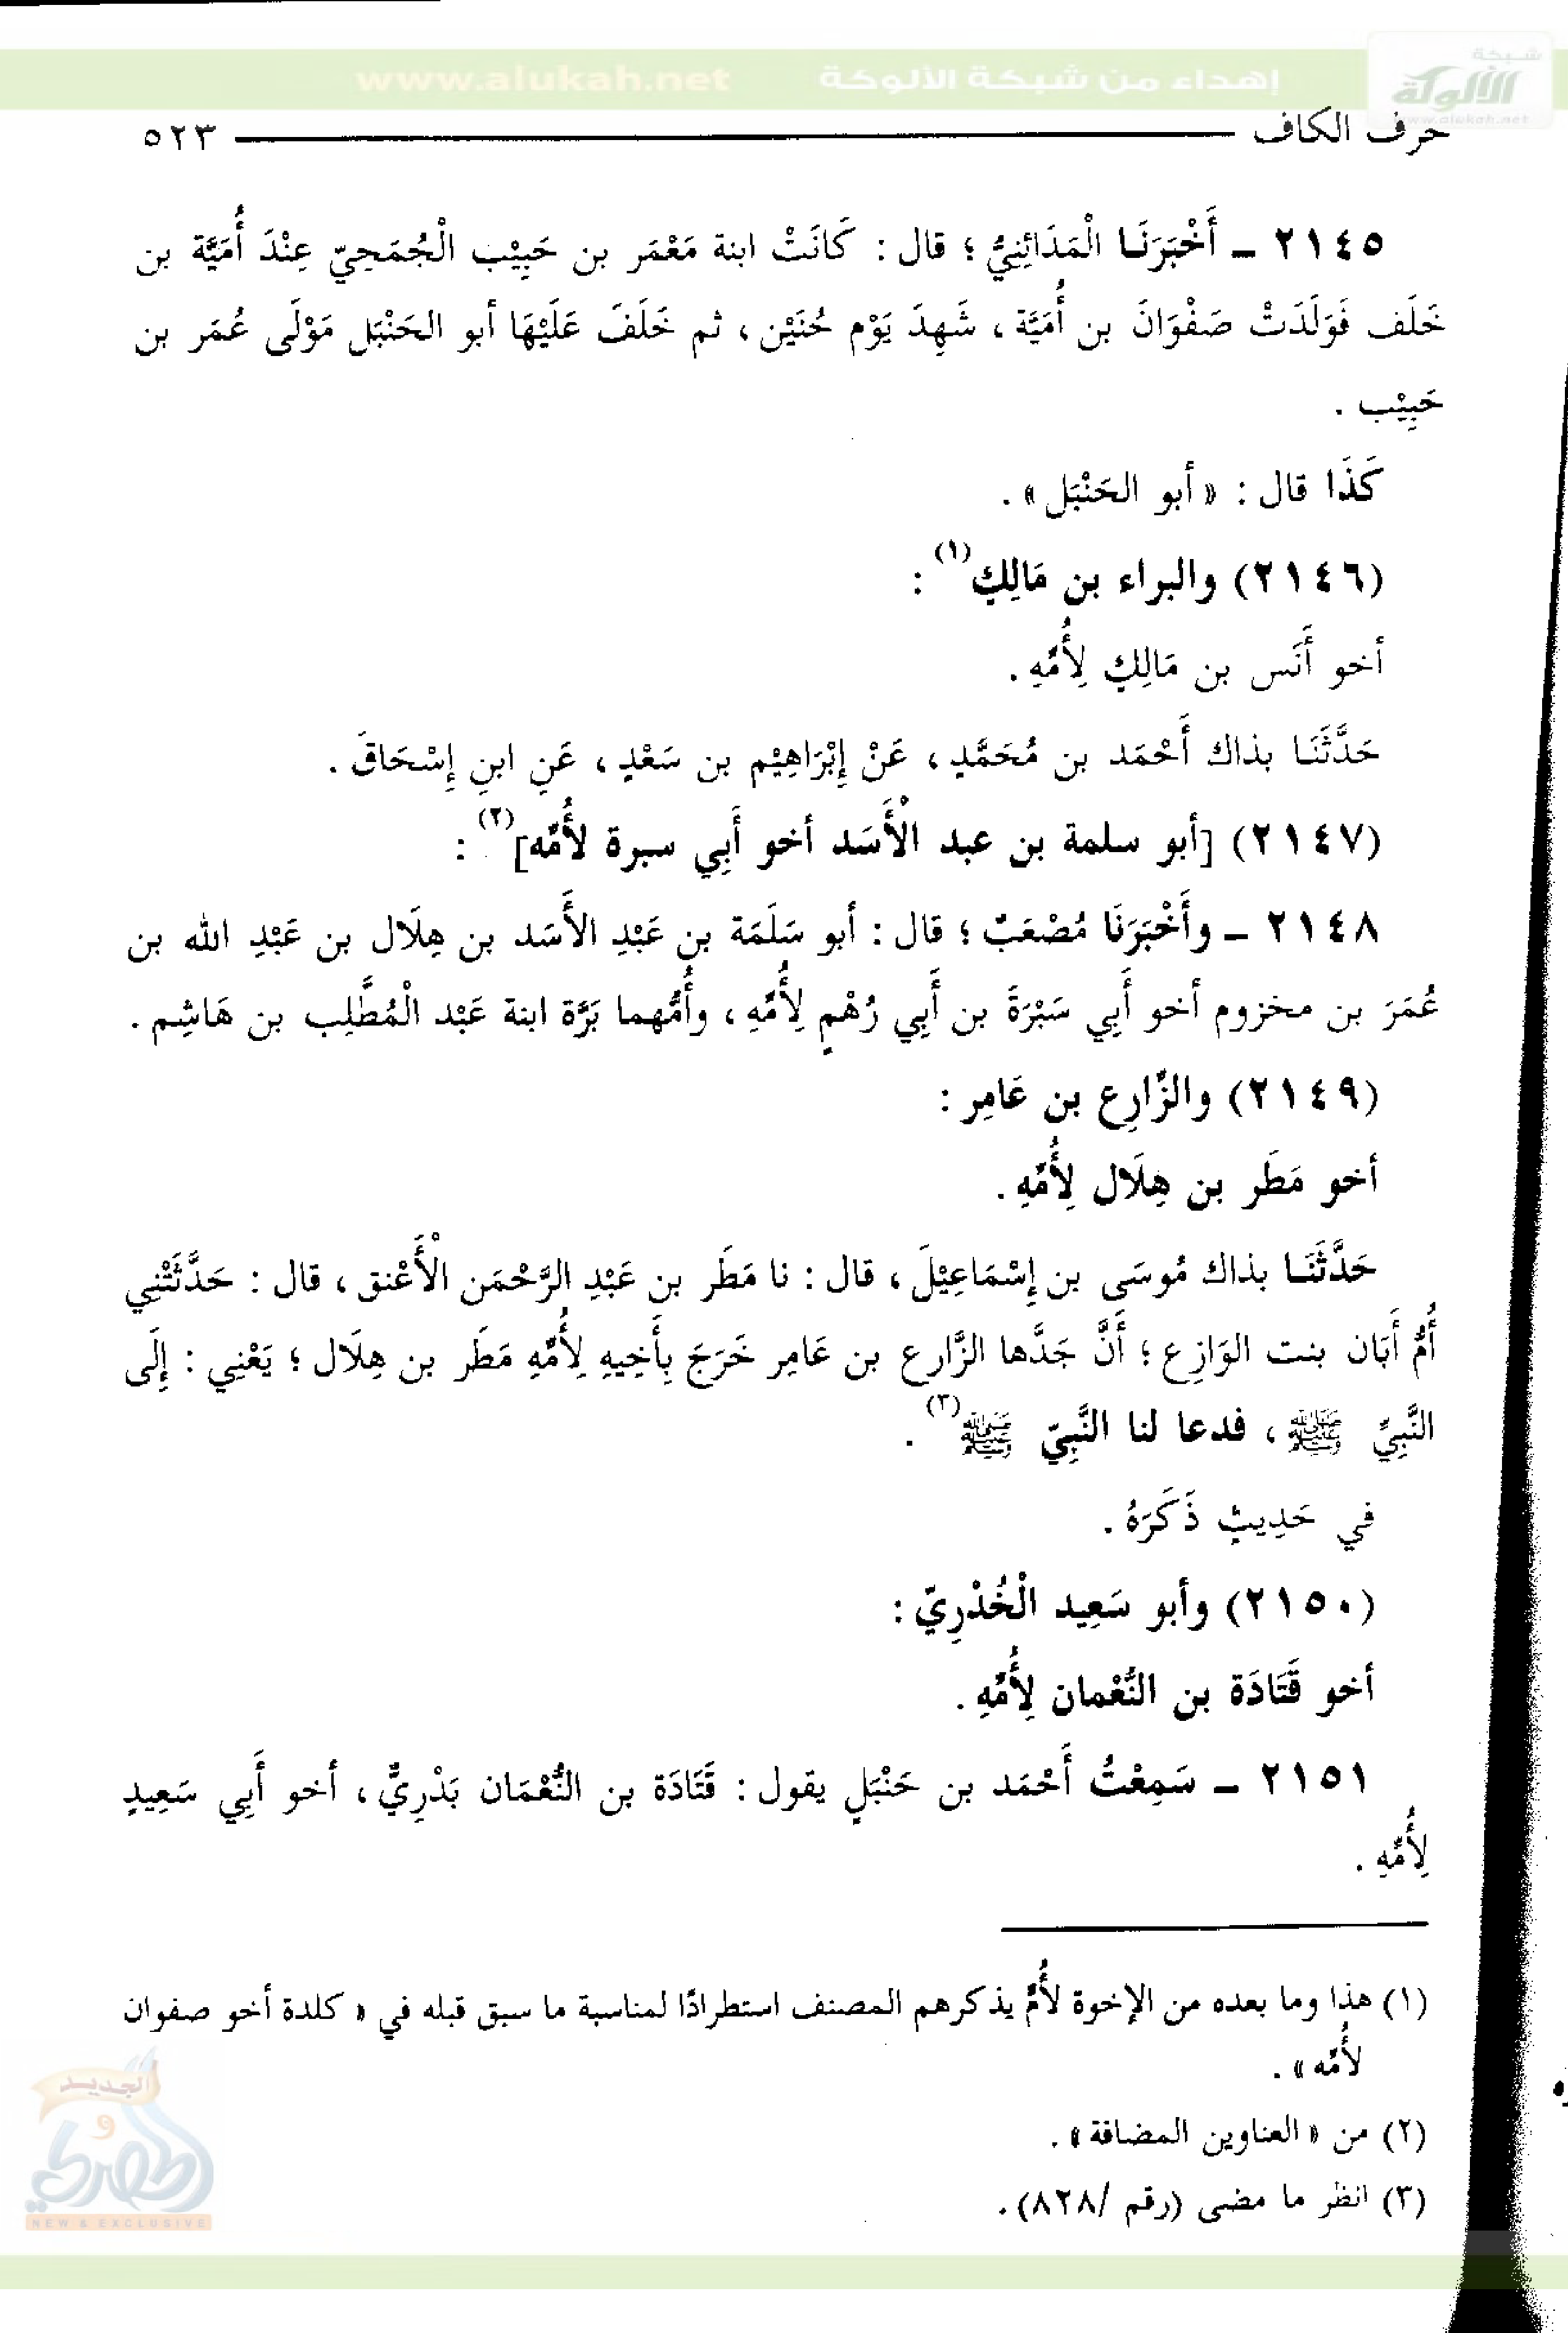 شبكة
الألوكة
www.alukah.net
إهداء من شبكة الألوكة www.alukah.net
حرف الكاف ٥٢٣
٢١٤٥ – أَخْبَرَنَا الْمَدَائِنِيُّ ؛ قال : كَانَتْ ابنة مَعْمَر بن حَبِيْب الْجُمَحِيّ عِنْدَ أُمَيَّة بن
خَلَف فَوَلَدَتْ صَفْوَانَ بن أُمَيَّة ، شَهِدَ يَوْم حُنَيْن ، ثم خَلَفَ عَلَيْهَا أبو الحَنْبَل مَوْلَى عُمَر بن
حَبِيْب .
كَذَا قال : « أبو الحَنْبَل » .
(٢١٤٦) والبراء بن مَالِكٍ(١) :
أخو أَنَس بن مَالِكٍ لِأُمِّهِ .
حَدَّثَنَا بذاك أَحْمَد بن مُحَمَّدٍ ، عَنْ إِبْرَاهِيْم بن سَعْدٍ ، عَنِ ابنِ إِسْحَاقَ .
(٢١٤٧) [أبو سلمة بن عبد الْأَسَد أخو أَبِي سبرة لأُمِّه](٢) :
٢١٤٨ – وأَخْبَرَنَا مُصْعَبٌ ؛ قال : أبو سَلَمَة بن عَبْدِ الأَسَد بن هِلَال بن عَبْدِ الله بن
عُمَرَ بن مخزوم أخو أَبِي سَبْرَةَ بن أَبِي رُهْمٍ لِأُمِّهِ ، وأُمُّهما بَرَّة ابنة عَبْد الْمُطَّلِب بن هَاشِم .
(٢١٤٩) والزَّارِع بن عَامِر :
أخو مَطَر بن هِلَال لِأُمِّهِ .
حَدَّثَنَا بذاك مُوسَى بن إِسْمَاعِيْلَ ، قال : نا مَطَر بن عَبْدِ الرَّحْمَن الْأَعْنق ، قال : حَدَّثَتْنِي
أُمُّ أَبَان بنت الوَازِع ؛ أَنَّ جَدَّها الزَّارع بن عَامِر خَرَجَ بِأَخِيهِ لِأُمِّهِ مَطَر بن هِلَال ؛ يَعْنِي : إِلَى
النَّبِيِّ ﷺ ، فدعا لنا النَّبِيّ ﷺ(٣) .
في حَدِيثٍ ذَكَرَهُ .
(٢١٥٠) وأبو سَعِيد الْخُدْرِيّ :
أخو قَتَادَة بن النُّعْمان لِأُمِّهِ .
٢١٥١ – سَمِعْتُ أَحْمَد بن حَنْبَلٍ يقول : قَتَادَة بن النُّعْمَان بَدْرِيٌّ ، أخو أَبِي سَعِيدٍ
لِأُمِّهِ .
(١) هذا وما بعده من الإخوة لأُمٍّ يذكرهم المصنف استطرادًا لمناسبة ما سبق قبله في « كلدة أخو صفوان
لأُمِّه » .
(٢) من « العناوين المضافة » .
(٣) انظر ما مضى (رقم /٨٢٨) .
الجديد
و
الحصري
NEW & EXCLUSIVE